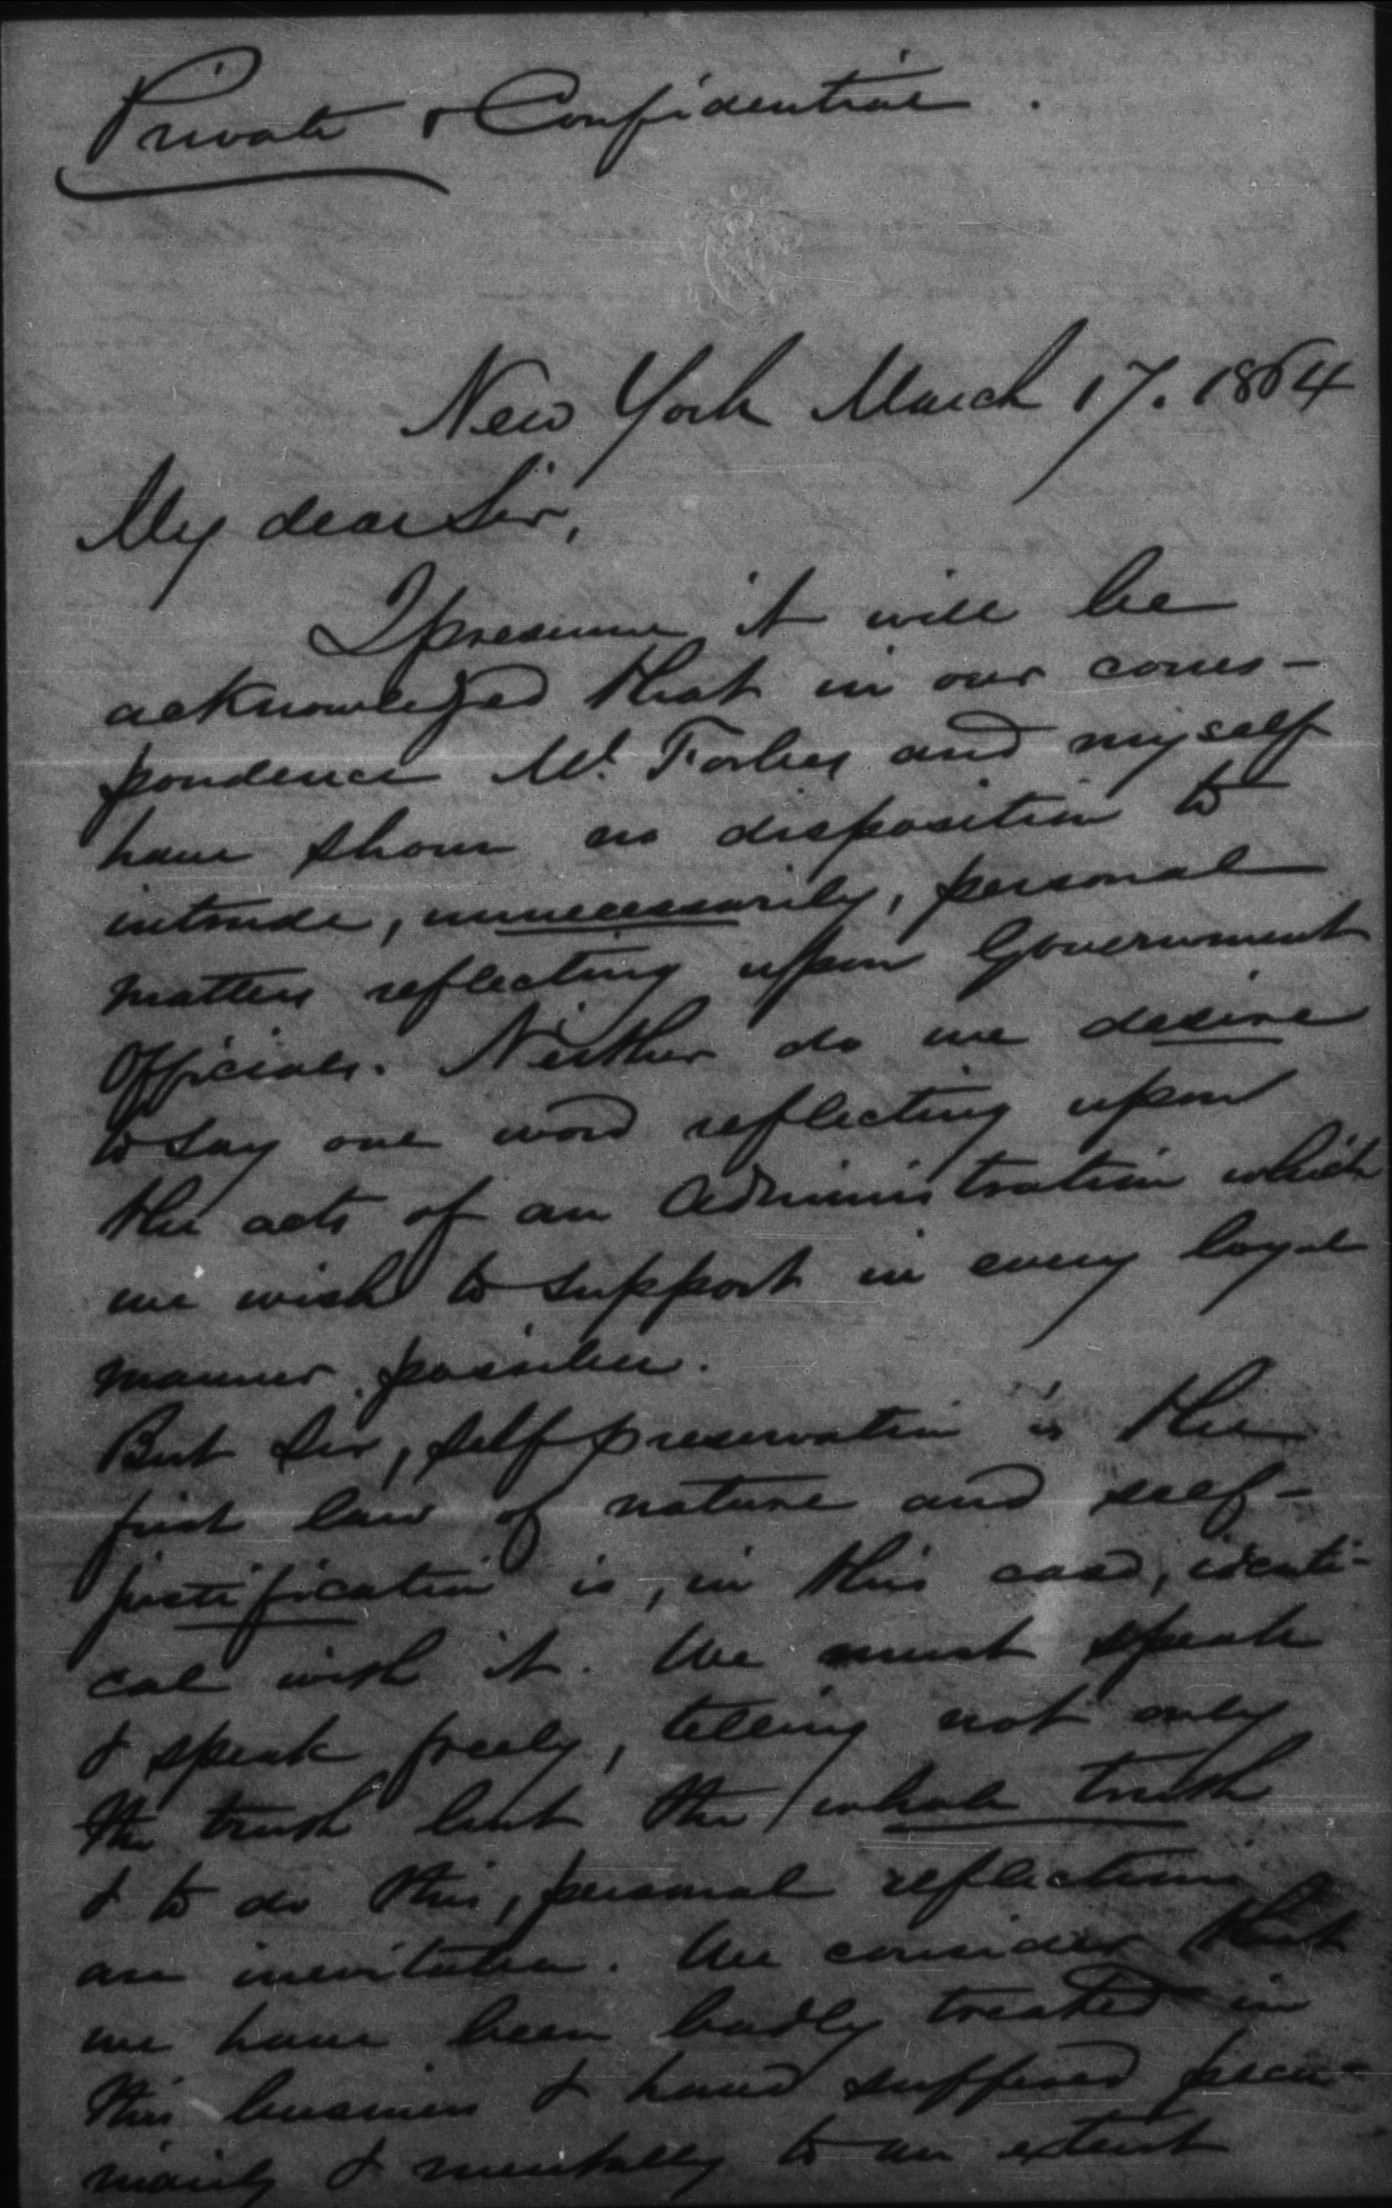 Private & Confidential.
New York March 17. 1864
My dear Sir,
I presume it will be
acknowledged that in our corres-
pondence Mr. Forbes and myself
have shown no disposition to
intrude, unnecessarily, personal
matters reflecting upon Government
Officials. Neither do we desire
to say one word reflecting upon
the acts of an Administration which
we wish to support in every loyal
manner possible.
But Sir, self preservation is the
first law of nature and self-
justification is, in this case, identi-
cal with it. We must speak
& speak freely, telling not only
the truth but the whole truth
& to do this, personal reflections
are inevitable. We consider that
we have been badly treated in
this business & have suffered pecu-
niarily & mentally to an extent